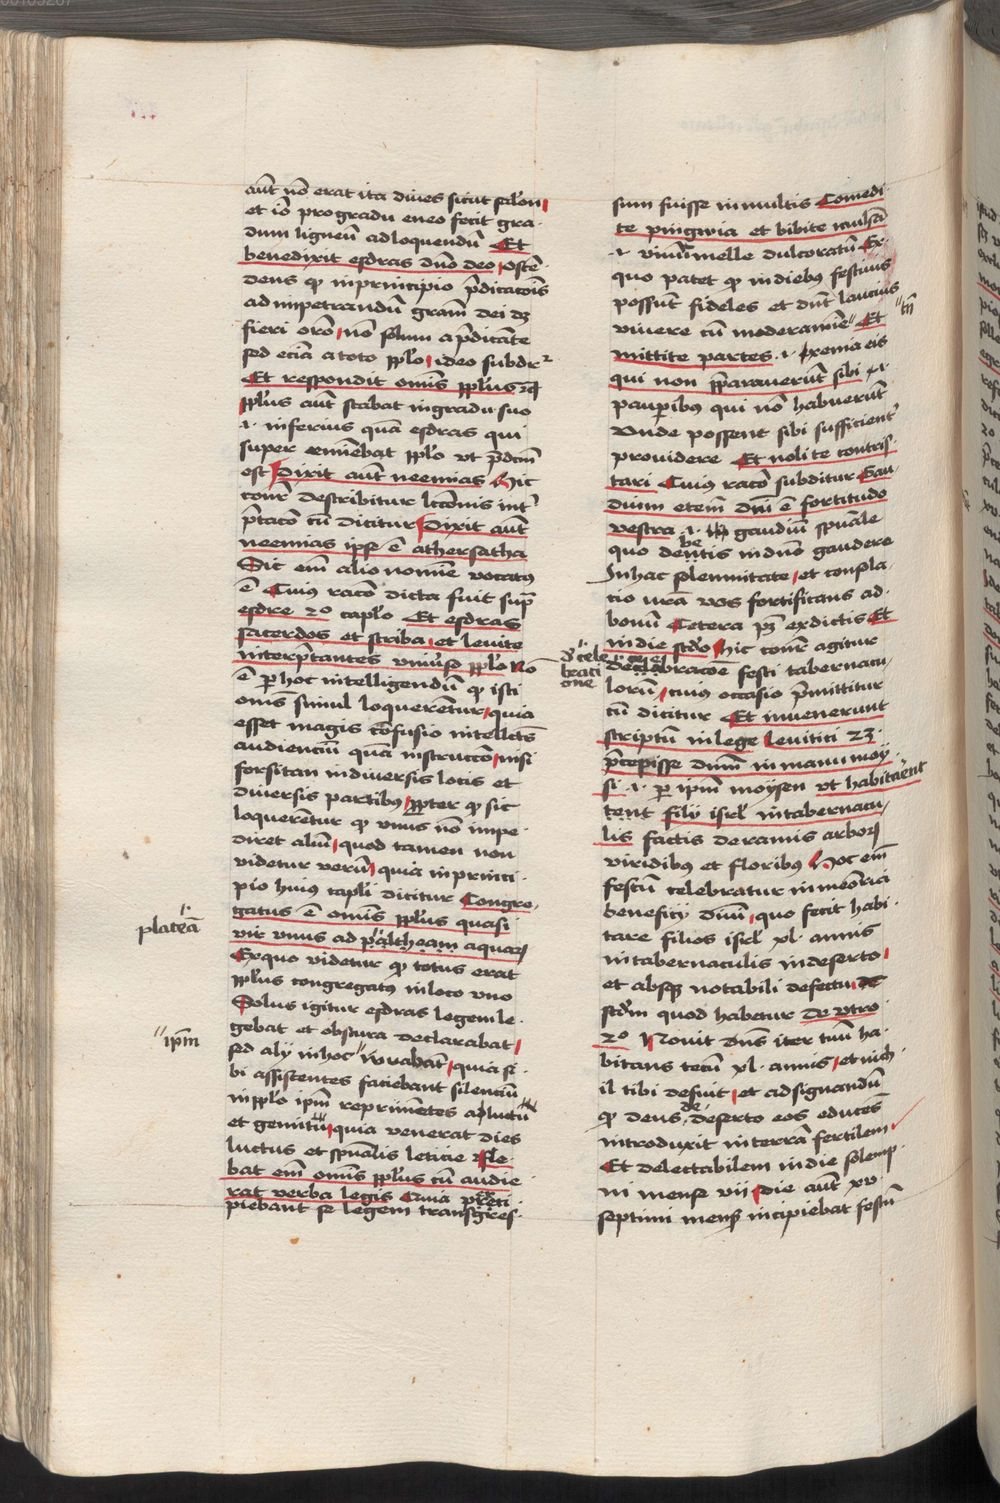 aūt nō erat ita diues sicut salon
et iō pro gradu eneo fecit gra-
dum ligneū ad loquendū Et
benedixit esdras dño deo ostē-
dens qꝫ in principio p̄dicacōis
ad impetrandū gram̄ dei dꝫ
fieri orō nō solum a p̄dicāte
sed eciā a toto pplo ideo subdr
Et respondit omīs pplus
pplus aūt stabat in gradu suo
.i. inferius quā esdras qui
super eminebat pplo vt p̄dcm̄
est Dixit aūt neemias Hic
conr̄ describitur lcōnis int̄-
p̄tacō cū dicitur Dixit aūt
neemias ipse ē athersatha
Sic em̄ alio nomīe vocatꝰ
ē Cuiꝰ racō dicta fuit sup̄
esdre 2º caplo Et esdras
sacerdos et scriba et leuite
interp̄tantes vniuſo pplo Nō
ē per hoc intelligendū qꝫ isti
om̄s simul loquerētur quia
esset magis confusio intellcūs
audienciū quā instruccō nisi
forsitan in diuersis locis et
diuersis partibꝰ ppter qꝫ sic
loquerētur qꝫ vnus nō impe-
diret aliū quod tamen non
videtur verū quia in princi-
pio huiꝰ capli dicitur Congre-
gatus ē omīs pplus quasi
vir vnus ad plateam aquarꝫ
plateā
Ex quo videtur qꝫ totus erat
pplus congregatꝰ in loco vno
Solus igitur esdras legem le-
gebat et obscura declarabat
ip̄m
sed alij in hoc iuuabāt quia si-
bi assistentes faciebant silenciū
in pplo ip̄m reprimētes a luctu
et gemitu quia venerat dies
luctus et spūalis leticie Fle-
bat em̄ omīs pplus cū audie-
rat verba legis Quia p̄ci-
piebant se legem transgres-
sum fuisse in multis Comedi-
te pingwia et bibite mulsā
.i. vinū melle dulcoratū Ex
quo patet qꝫ in diebꝰ festiuis
possūt fideles et dn̄t laucius
tn̄
viuere cū moderamīe Et
mittite partes .i. exenia eis
qui non p̄parauerūt sibi .i.
pauperibus qui nō habuerūt
vnde possent sibi sufficient̄
prouidere Et nolite contris-
tari Cuius racō subditur Gau-
dium etem̄ dn̄i ē fortitudo
vestra .i. gaudiū spūale
quo debetis in dn̄o gaudere
In hac solennitate et consola-
cio vr̄a vos fortificans ad
bonū Cetera pꝫ ex dictis Et
in die scd̄o Hic conr̄ agitur
de celebracōe festi tabernacu-
de cele
braci
one
lorū cuius occasio p̄mittitur
cū dicitur Et inuenerunt
scriptū in lege leuitici 23
p̄cepisse dn̄m in manu moy-
si .i. per ip̄m moysen vt habitēnt
tent filij isrl in tabernacu-
lis factis de ramis arborꝫ
viridibꝰ et floribꝰ Hoc em̄
festū celebratur in memoria
beneficij diuini quo fecit habi-
tare filios isrl xl annis
in tabernaculis in deserto
et absqꝫ notabili defectu
scd̄m quod habetur Deutro
2º Nouit dn̄s iter tuū ha-
bitans tecū xl annis et nich-
il tibi defuit et ad signandū
qꝫ deus de deserto eos educēs
introduxit in terrā fertilem
Et delectabilem in die solemp-
ni mense vii die aūt xv
septimi mensꝭ incipiebat festū